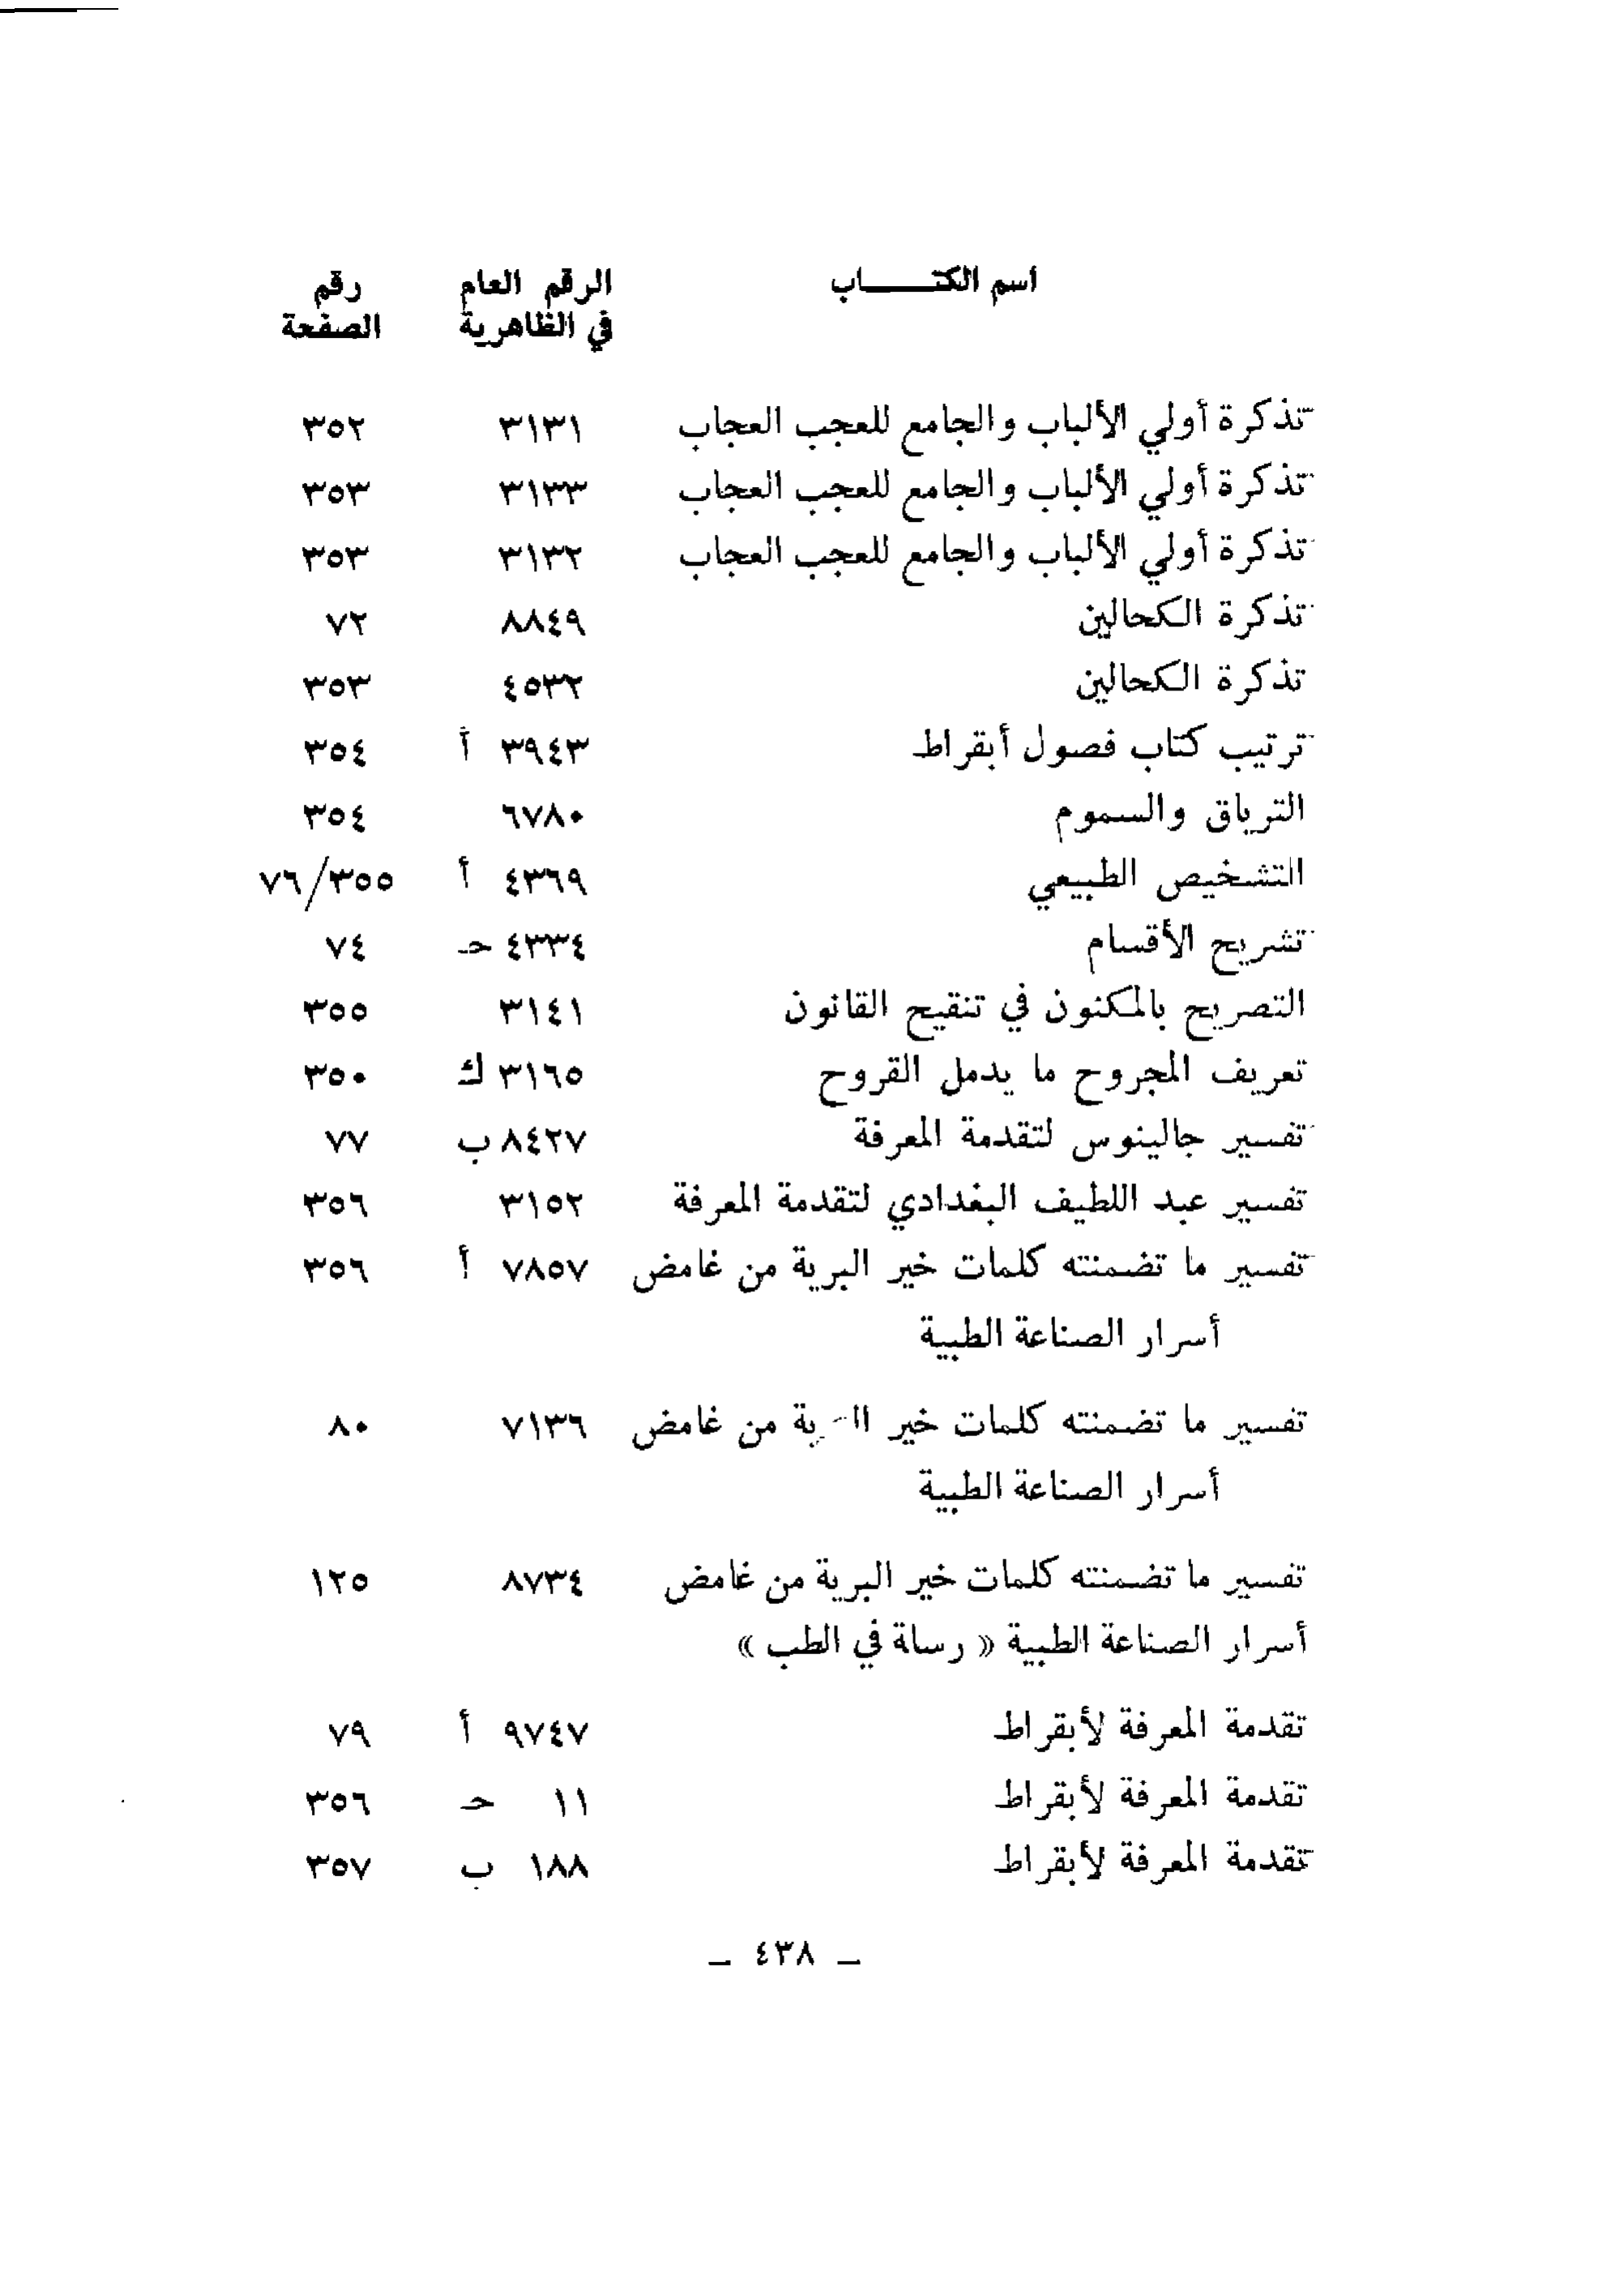 اسم الكتـــــاب الرقم العام رقم
في الظاهرية الصفحة
تذكرة أولي الألباب والجامع للعجب العجاب ٣١٣١ ٣٥٢
تذكرة أولي الألباب والجامع للعجب العجاب ٣١٣٣ ٣٥٣
تذكرة أولي الألباب والجامع للعجب العجاب ٣١٣٢ ٣٥٣
تذكرة الكحالين ٨٨٤٩ ٧٢
تذكرة الكحالين ٤٥٣٢ ٣٥٣
ترتيب كتاب فصول أبقراط ٣٩٤٣ أ ٣٥٤
الترياق والسموم ٦٧٨٠ ٣٥٤
التشخيص الطبيعي ٤٣٦٩ أ ٧٦/٣٥٥
تشريح الأقسام ٤٣٣٤ حـ ٧٤
التصريح بالمكنون في تنقيح القانون ٣١٤١ ٣٥٥
تعريف المجروح ما يدمل القروح ٣١٦٥ ك ٣٥٠
تفسير جالينوس لتقدمة المعرفة ٨٤٢٧ ب ٧٧
تفسير عبد اللطيف البغدادي لتقدمة المعرفة ٣١٥٢ ٣٥٦
تفسير ما تضمنته كلمات خير البرية من غامض ٧٨٥٧ أ ٣٥٦
أسرار الصناعة الطبية
تفسير ما تضمنته كلمات خير من غامض ٧١٣٦ ٨٠
أسرار الصناعة الطبية
تفسير ما تضمنته كلمات خير البرية من غامض ٨٧٣٤ ١٢٥
أسرار الصناعة الطبية « رسالة في الطب »
تقدمة المعرفة لأبقراط ٩٧٤٧ أ ٧٩
تقدمة المعرفة لأبقراط ١١ حـ ٣٥٦
تقدمة المعرفة لأبقراط ١٨٨ ب ٣٥٧
ـ ٤٣٨ ـ